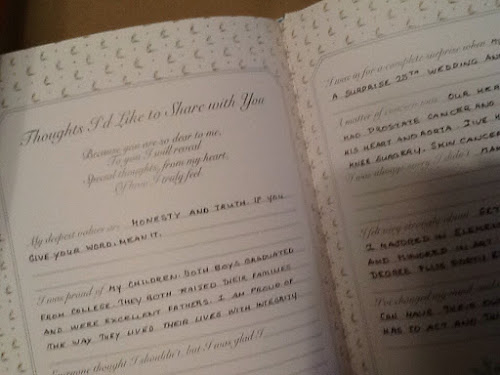 Thoughts I'd Like to Share with You
Because you are so dear to me,
To you I will reveal
Special thoughts, from my heart,
Of how I truly feel.
My deepest values are HONESTY AND TRUTH. IF YOU
GIVE YOUR WORD, MEAN IT.
I was proud of MY CHILDREN. BOTH BOYS GRADUATED
FROM COLLEGE. THEY BOTH RAISED THEIR FAMILIES
AND WERE EXCELLENT FATHERS. I AM PROUD OF
THE WAY THEY LIVED THEIR LIVES WITH INTEGRITY.
Everyone thought I shouldn't, but I was glad I
I was in for a complete surprise when
A SURPRISE 25TH WEDDING
A matter of concern was OUR
HAD PROSTATE CANCER AND
HIS HEART AND AORTA. I'VE
KNEE SURGERY, SKIN CANCER
I was always sorry I didn't
I felt very strongly about
I MAJORED IN
AND MINORED IN ART
DEGREE PLUS
I've changed my mind
CAN HAVE
HAS TO ACT AND